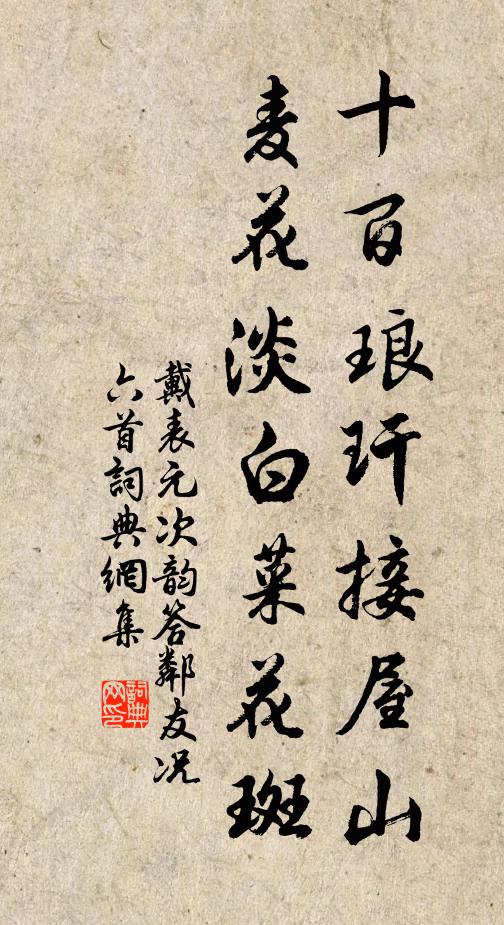 十百琅玕接屋山
麦花淡白菜花斑
戴表元次韵答鄰友况
六首詞典網集
詞典
网印